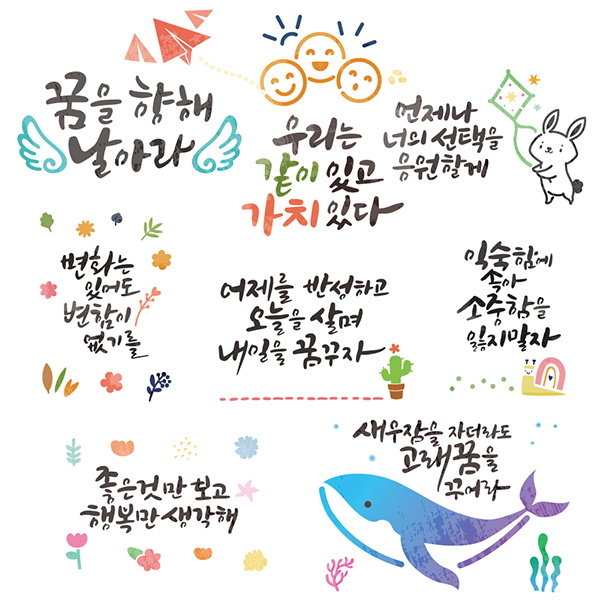 꿈을 향해
날아라
우리는
같이 있고
가치 있다
언제나
너의 선택을
응원할게
변화는
있어도
변함이
없기를
어제를 반성하고
오늘을 살며
내일을 꿈꾸자
익숙함에
속아
소중함을
잃지말자
좋은것만 보고
행복만 생각해
새우잠을 자더라도
고래꿈을
꾸어라